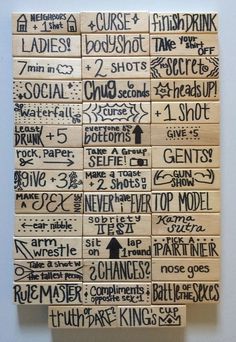 NEIGHBORS
+ 1 Shot
CURSE
finish DRINK
LADIES!
body Shot
Take your
OFF
7 min in
+ 2 SHOTS
secret
SOCIAL
Chug 6 seconds
heads UP!
waterfall
curse
+1 Shot
Least
DRUNK +5
everyone
bottoms
GIVE +5
rock, Paper,
Take A Group
SELFIE!
GENTS!
GIVE +3
Make a toast
+ 2 Shots
GUN
SHOW
MAKE
A SEX NOISE
NEVER HAVE I EVER
TOP MODEL
ear nibble
sobriety
TEST
Kama
sutra
arm
wrestle
sit
on
lap
1 round
PICK A
PARTNER
Take a shot w
the tallest person
¿CHANCES?
nose goes
RULE MASTER
Compliments
opposite sex
Battle OF THE SEXES
truth OR DARE?
KING'S CUP